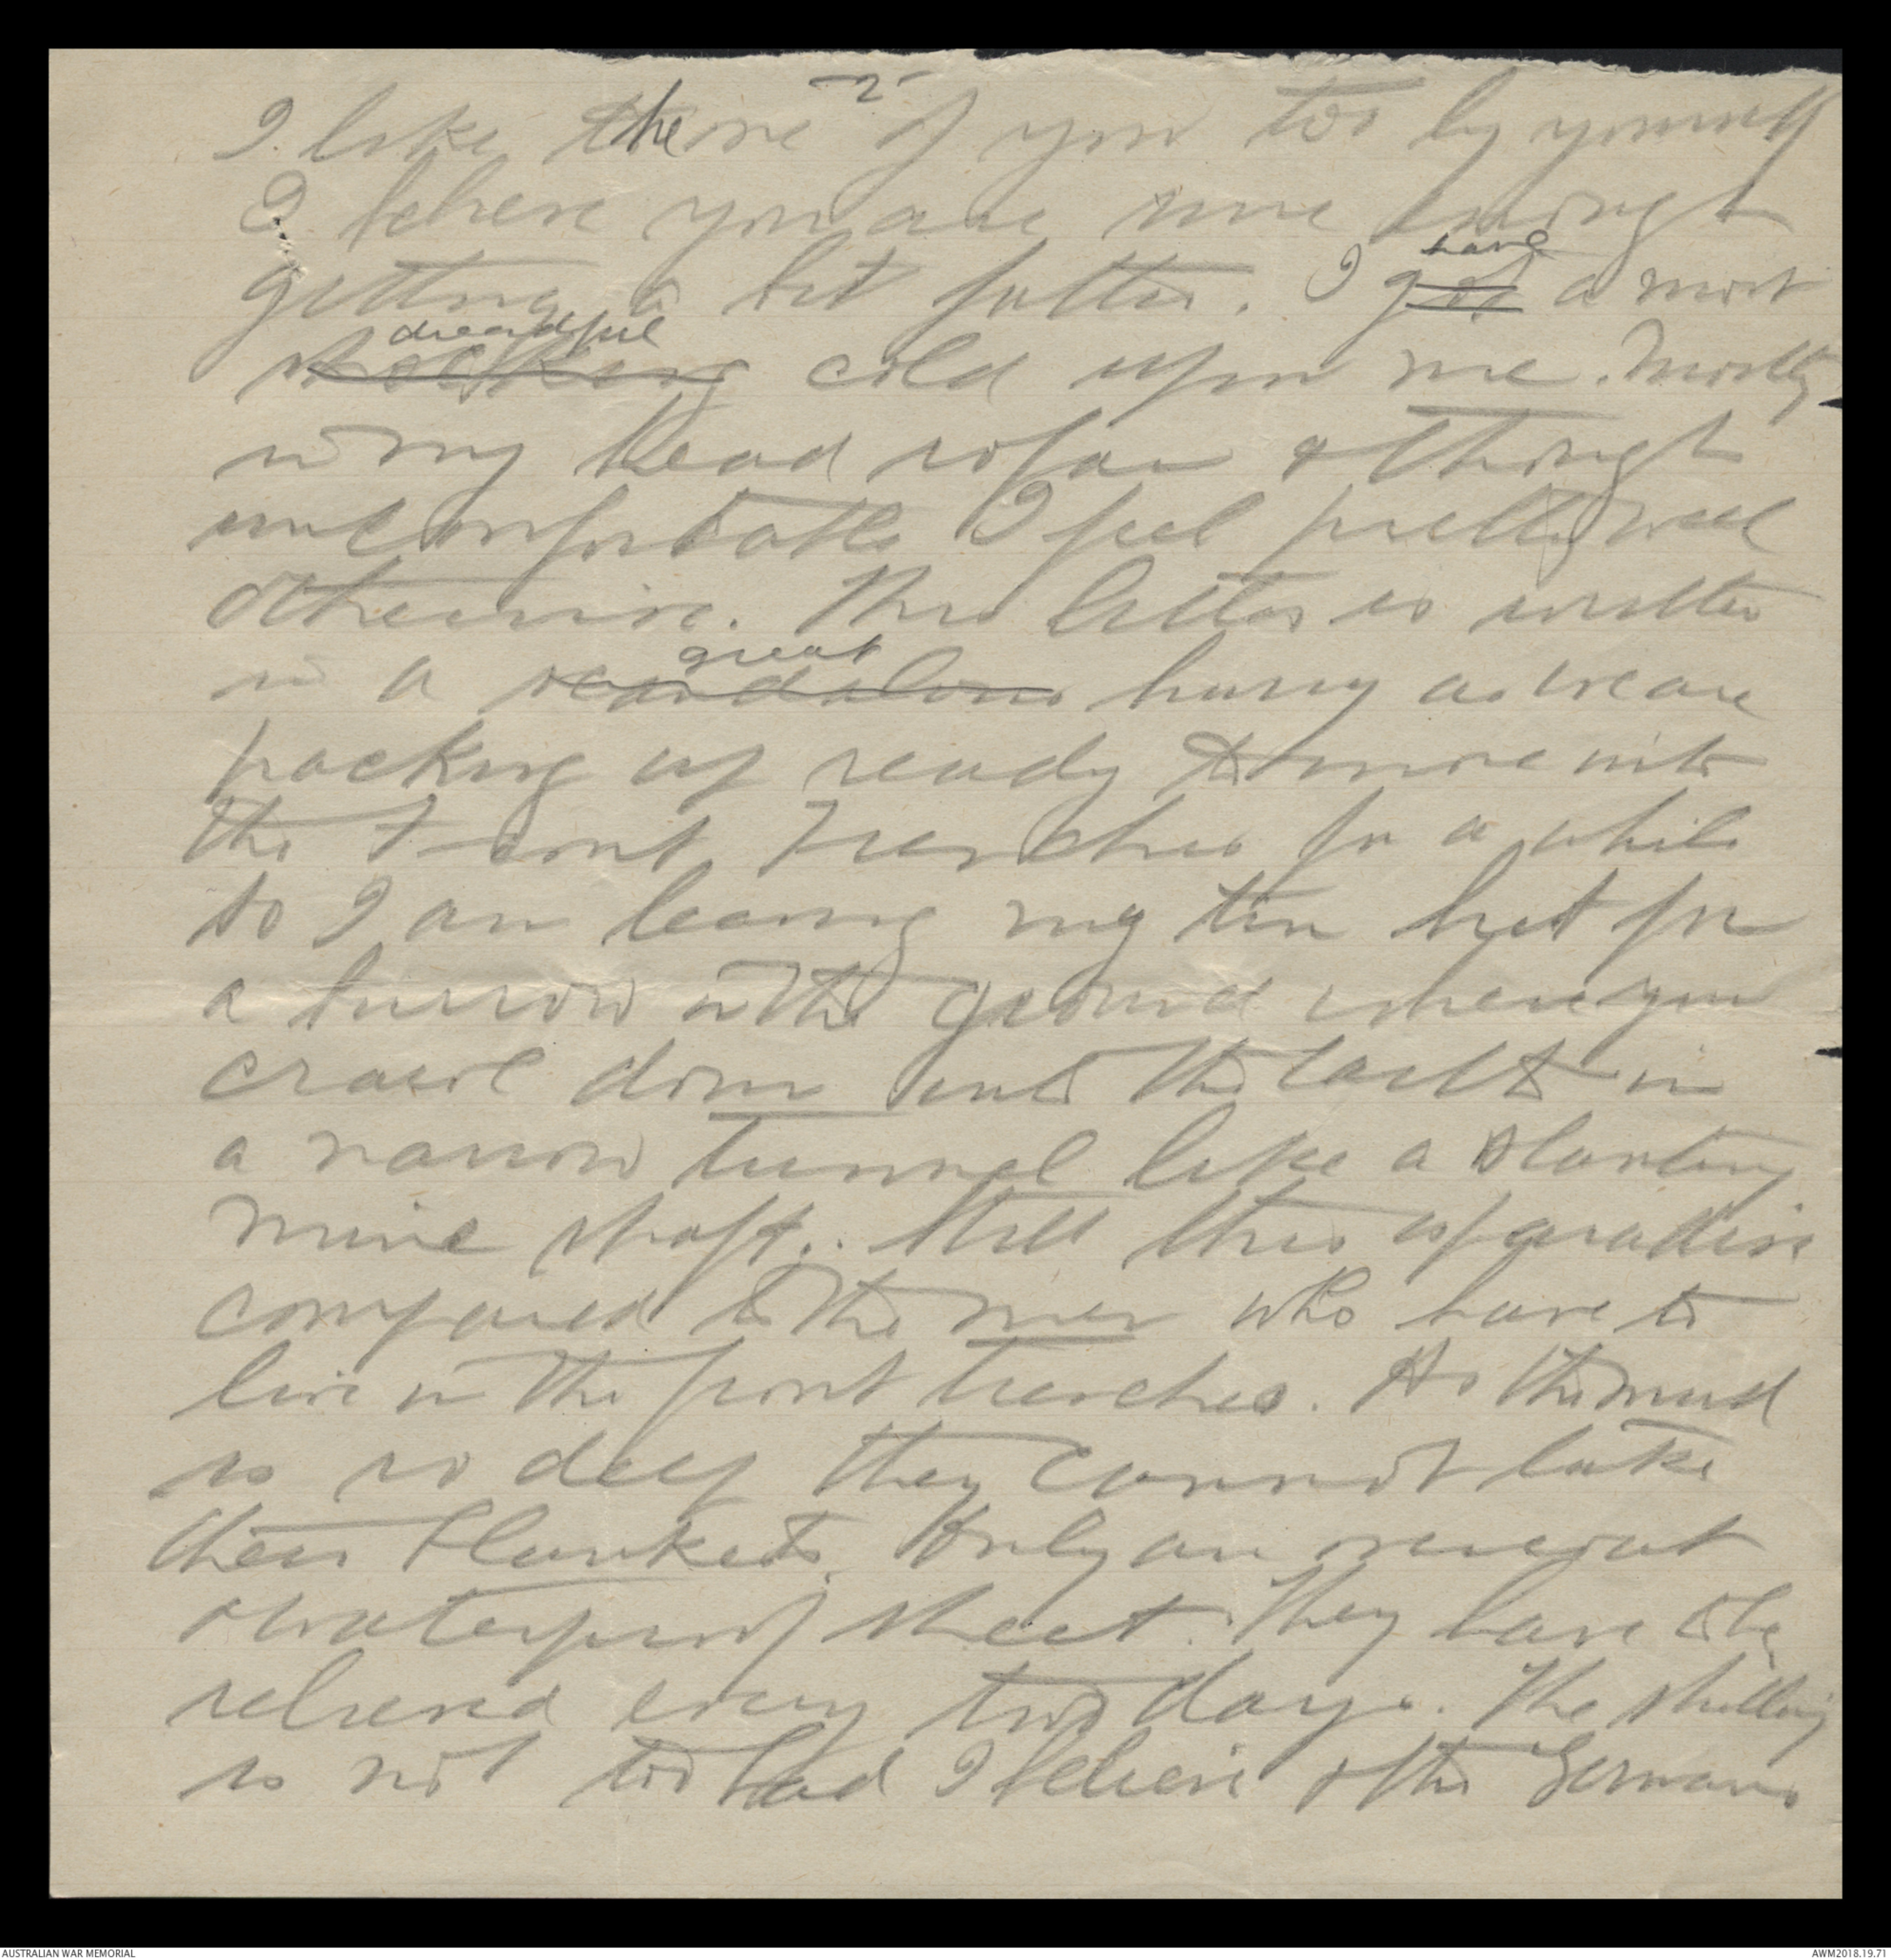 -2-
I like the one of you too by yourself
I believe you are sure enough
getting a bit fatter. I got have a most
shocking dreadful cold upon me. Mostly
in my head so far & though
uncomfortable I feel pretty well
otherwise. This letter is written
in a scandalous great hurry as we are
packing up ready to move into
the Front Trenches for a while
so I am leaving my tin hut for
a burrow in the ground where you
crawl down into the earth in
a narrow tunnel like a slanting
mine shaft. Still this is paradise
compared to the men who have to
live in the front trenches. As the mud
is so deep they cannot take
their Blankets. Only an overcoat
& waterproof sheet. They have to be
relieved every two days. The shelling
is not too bad I believe & the Germans
AUSTRALIAN WAR MEMORIAL
AWM2018.19.71